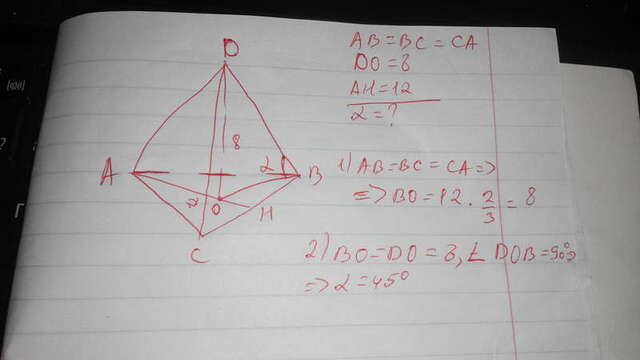 D
AB=BC=CA
DO=8
AH=12
α=?
8
A
α
B
1) AB=BC=CA=>
=> BO=12·2/3=8
O
H
C
2) BO=DO=8, ∠DOB=90°=>
=> α=45°